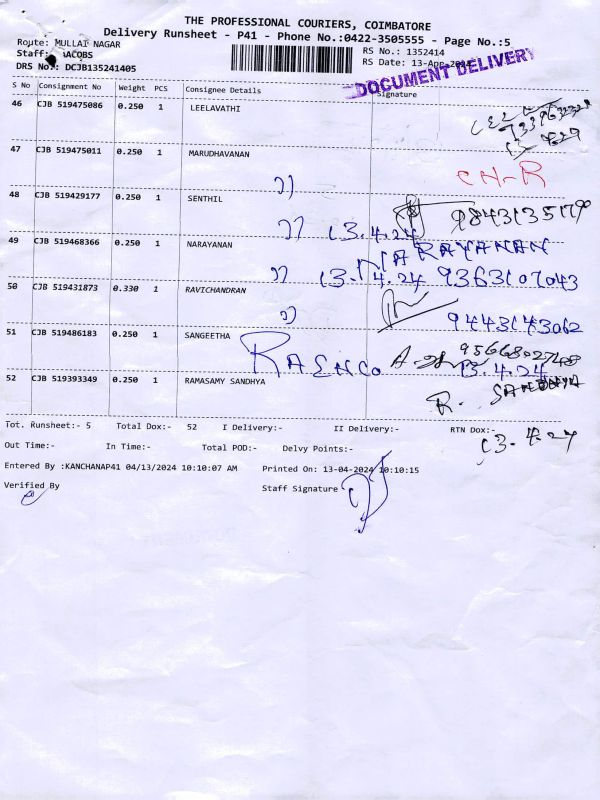 THE PROFESSIONAL COURIERS, COIMBATORE
Delivery Runsheet - P41 - Phone No.:0422-3505555 - Page No.:5
Route: MULLAI NAGAR RS No.: 1352414
Staff: ACOBS RS Date: 13-Apr-2024
DRS No.: DCJB135241405
DOCUMENT DELIVERY
S No Consignment No Weight PCS Consignee Details Signature
46 CJB 519475086 0.250 1 LEELAVATHI
47 CJB 519475011 0.250 1 MARUDHAVANAN
CN-R
48 CJB 519429177 0.250 1 SENTHIL
13.4.24
49 CJB 519468366 0.250 1 NARAYANAN NARAYANAN
13.4.24 9363107043
50 CJB 519431873 0.330 1 RAVICHANDRAN
9443143062
51 CJB 519486183 0.250 1 SANGEETHA
13.4.24
52 CJB 519393349 0.250 1 RAMASAMY SANDHYA R. SANDHYA
Tot. Runsheet:- 5 Total Dox:- 52 I Delivery:- II Delivery:- RTN Dox:-
13.4.24
Out Time:- In Time:- Total POD:- Delvy Points:-
Entered By :KANCHANAP41 04/13/2024 10:10:07 AM Printed On: 13-04-2024 10:10:15
Verified By Staff Signature